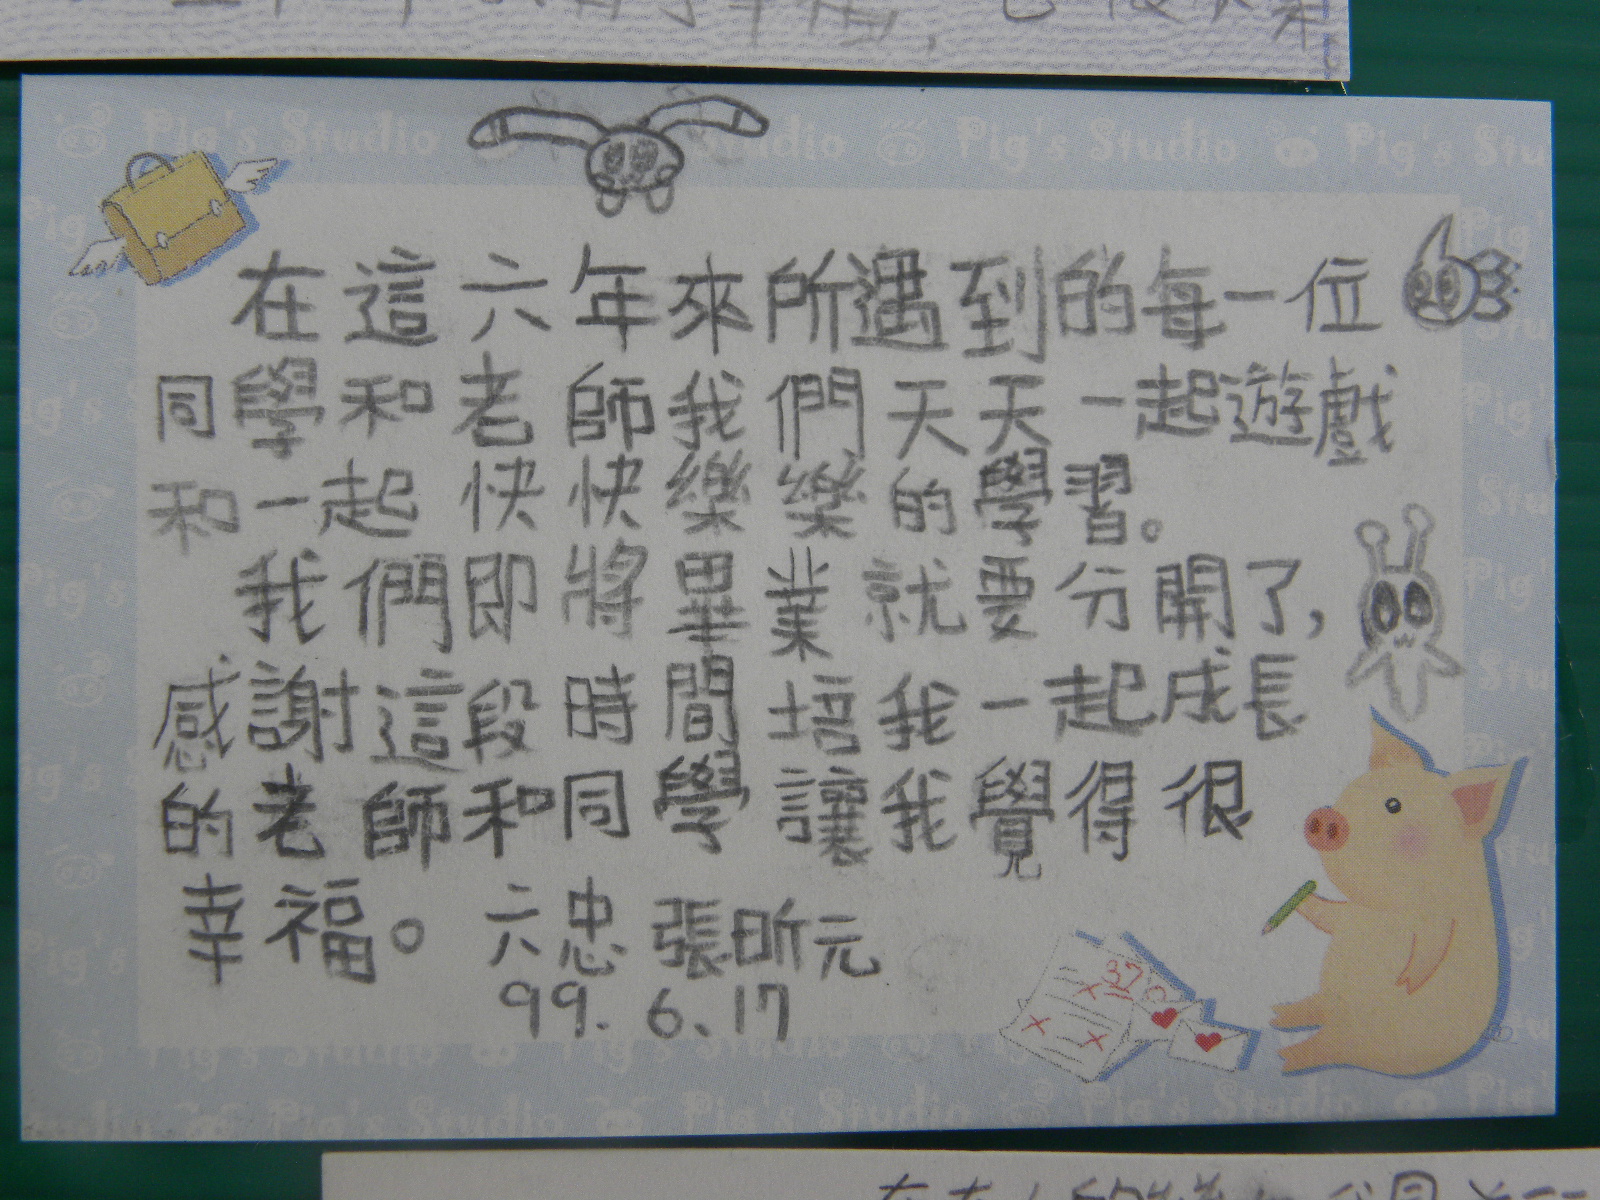 Pig's Studio Pig's Studio Pig's Stu
在這六年來所遇到的每一位
同學和老師我們天天一起遊戲
和一起快快樂樂的學習。
我們即將畢業就要分開了,
感謝這段時間培我一起成長
的老師和同學讓我覺得很
幸福。六忠 張昕元
99.6.17
37